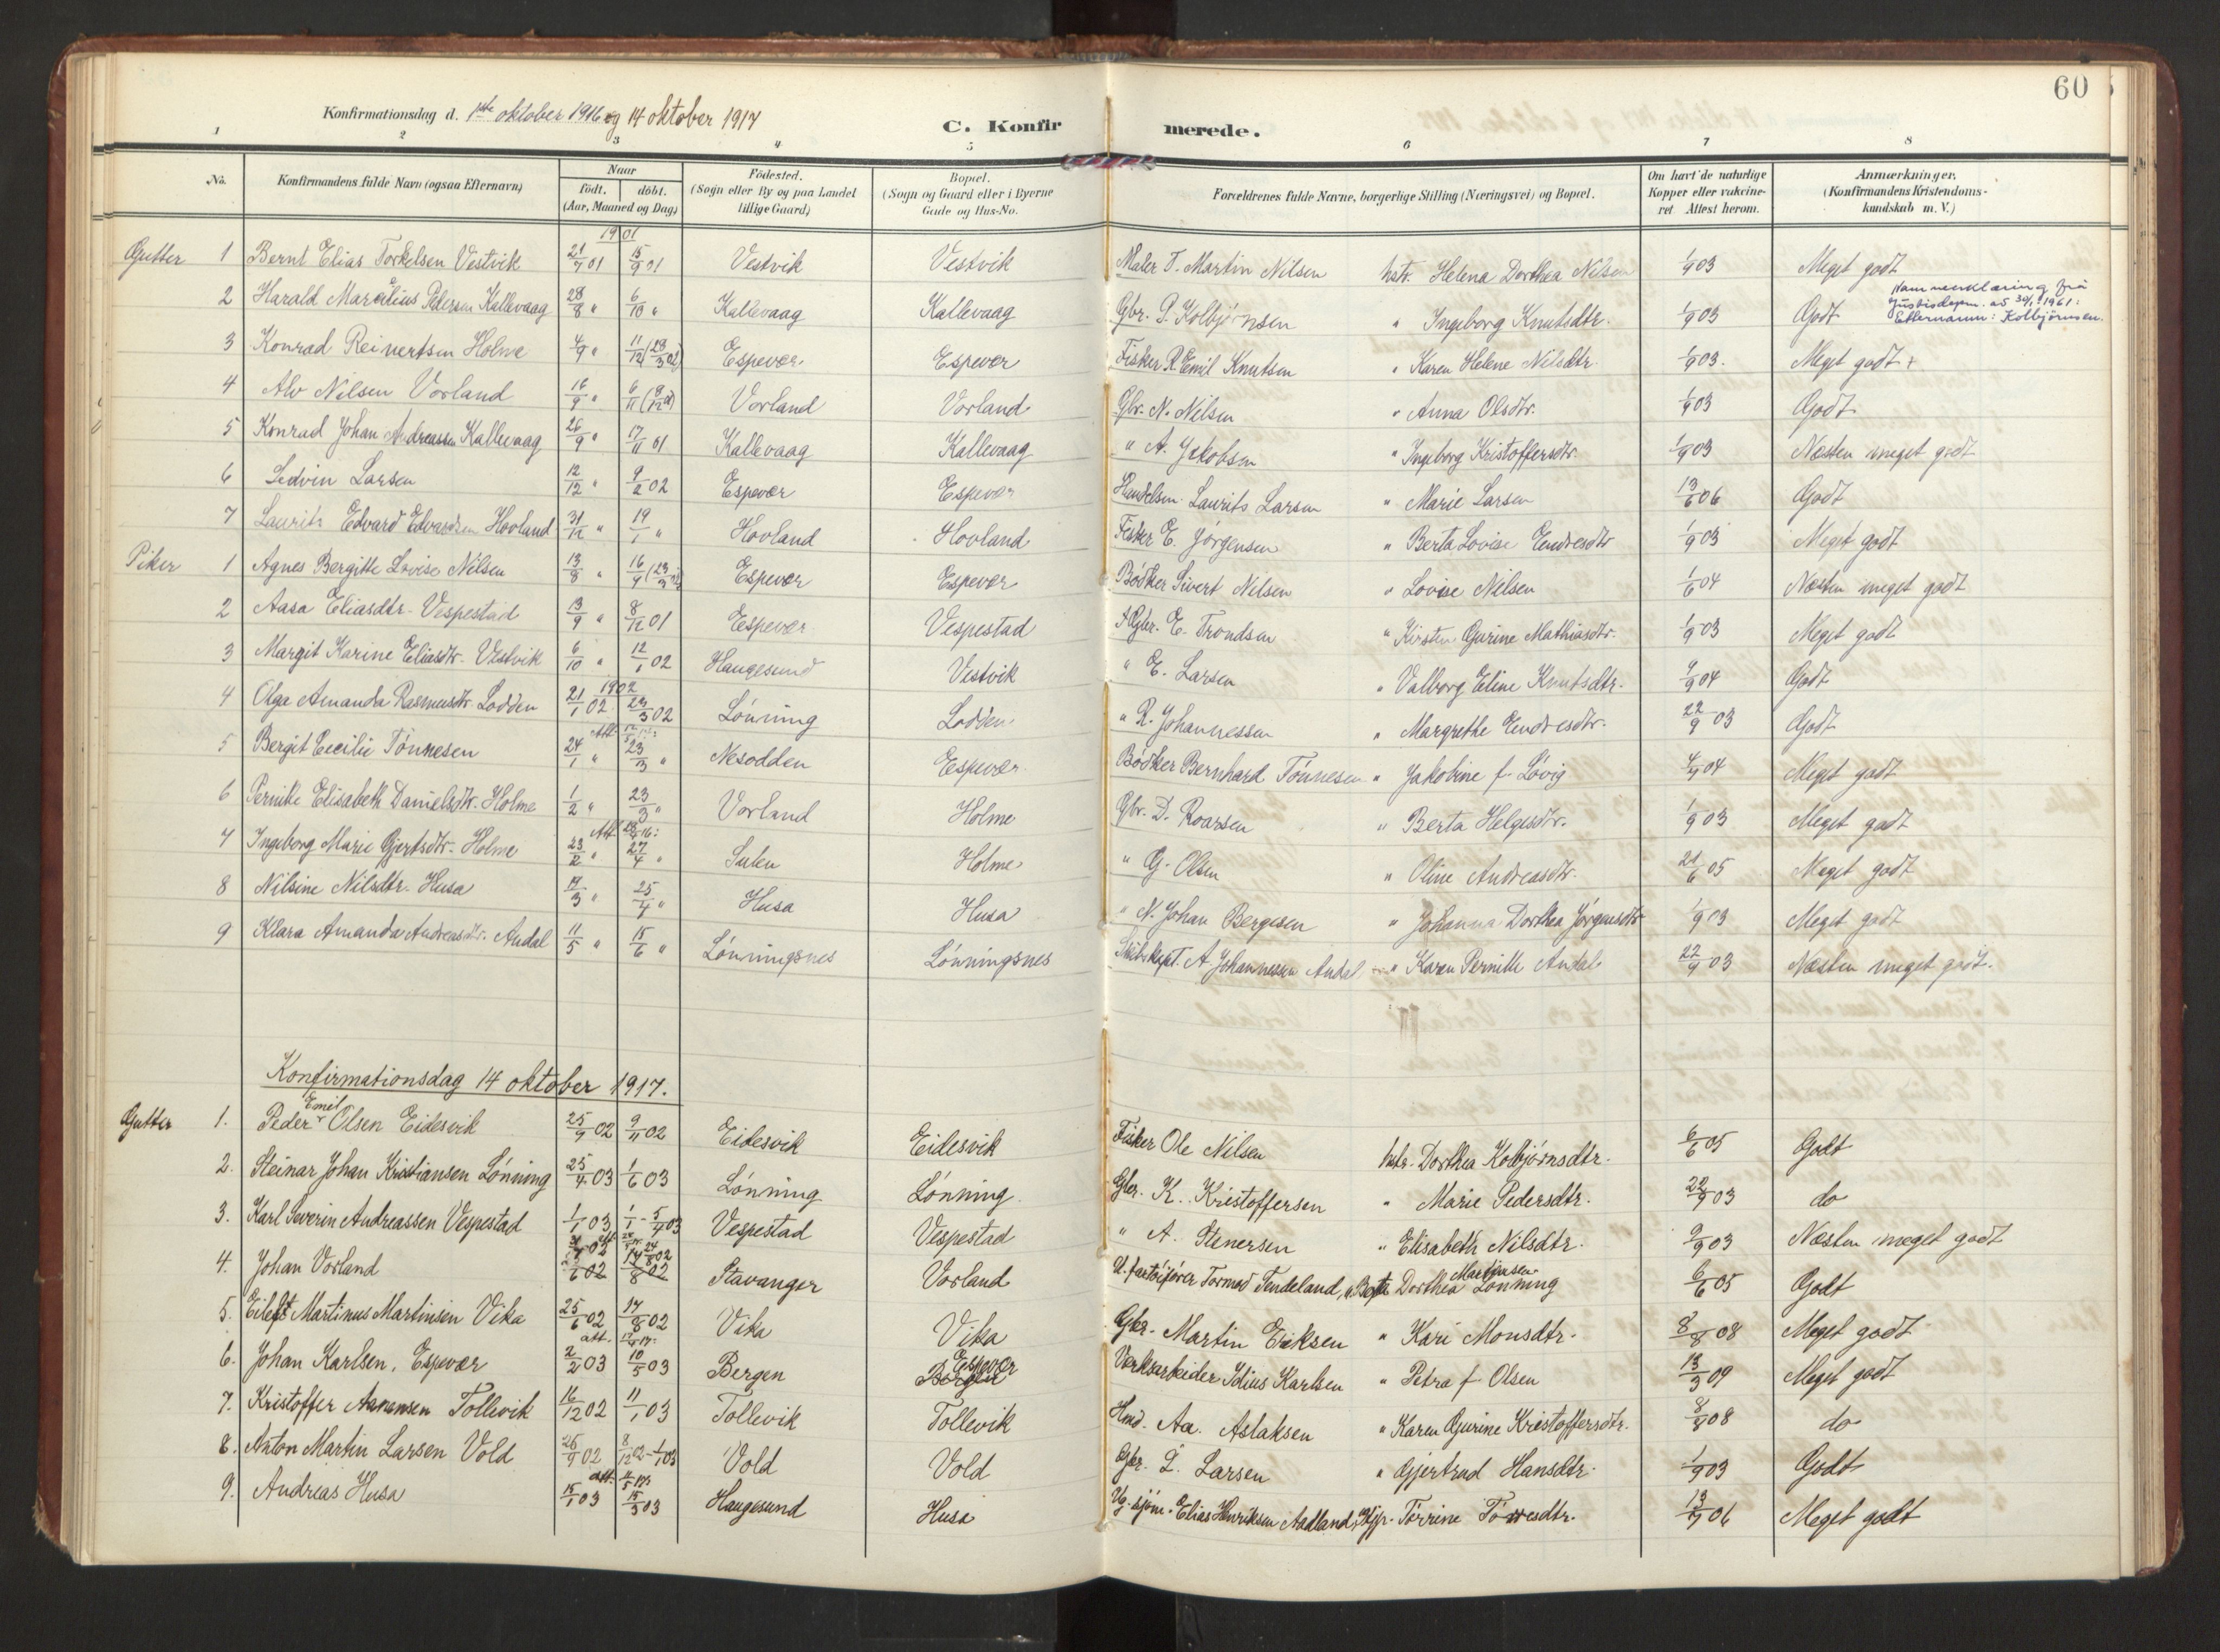 60
Konfirmationsdag d. 1ste oktober 1916 og 14 oktober 1917
C. Konfirmerede.
1 2 3 4 5 6 7 8
No. Konfirmandens fulde Navn (ogsaa Efternavn) Naar født. døbt. (Aar, Maaned og Dag) Födested. (Sogn eller By og paa Landet tillige Gaard) Bopæl. (Sogn og Gaard eller i Byerne Gade og Hus-No. Forældrenes fulde Navne, borgerlige Stilling (Næringsvei) og Bopæl. Om havt de naturlige Kopper eller vakcineret Attest herom. Anmærkninger. (Konfirmandens Kristendomskundskab m. V.)
1901
Gutter 1 Bernt Elias Torkelsen Vestvik 21/7 01 15/9 01 Vestvik Vestvik Maler T. Martin Nilsen hstr. Helena Dorthea Nilsen 1/9 03 Meget godt
2 Harald Marselius Pedersen Kallevaag 28/8 " 6/10 " Kallevaag Kallevaag Gbr. P. Kolbjørnsen " Ingeborg Knutsdtr. 1/9 03 Godt Namneerklæring frå Justisdepm. av 30/1 1961: Etternamn: Kolbjørnsen.
3 Konrad Reinertsen Holme 4/9 " 11/12 (23/3 02) Espevær Espevær Fisker R. Emil Knutsen " Karen Helene Nilsdtr. 1/9 03. Meget godt +
4 Alv Nilsen Vorland 16/9 " 6/11 (8/12 01) Vorland Vorland Gbr. N. Nilsen " Anna Olsdtr. 1/9 03 Godt
5 Konrad Johan Andreassen Kallevaag 26/9 " 17/11 01 Kallevaag Kallevaag " A. Jakobsen " Ingeborg Kristoffersdtr. 1/9 03 Næsten meget godt
6 Sedvin Larsen 12/12 " 9/2 02 Espevær Espevær Handelsm. Laurits Larsen " Marie Larsen 13/6 06 Godt
7 Laurits Edvard Edvardsen Hovland 31/12 " 19/1 " Hovland Hovland Fisker E. Jørgensen " Berta Lovise Endresdtr 1/9 03 Meget godt
Piker 1 Agnes Bergitte Lovise Nilsen 13/8 " 16/9 (23/3 02) Espevær Espevær Bødker Sivert Nilsen " Lovise Nilsen 1/6 04 Næsten meget godt
2 Aasa Eliasdtr. Vespestad 13/9 " 8/12 01 Espevær Vespestad Gbr. E. Trondsen " Kirsten Gurine Mathiasdtr. 1/9 03 Meget godt
3 Margit Karine Eliasdtr. Vestvik 6/10 " 12/1 02 Haugesund Vestvik " E. Larsen " Valborg Eline Knutsdtr. 9/9 04 Godt
1902
4 Olga Amanda Rasmusdtr. Lodden 21/1 02 23/3 02 Lønning Lodden " R. Johannessen " Margrethe Endresdtr. 22/9 03 Godt
5 Bergit Cecilie Tønnesen 24/1 " 23/3 " Nesodden Espevær Bødker Bernhard Tønnesen " Jakobine f. Løvig 4/9 04 Meget godt
6 Pernille Elisabeth Danielsdtr. Holme 1/2 " 23/3 " Vorland Holme Gbr. D. Roarsen " Berta Helgesdtr. 1/9 03 Meget godt
7 Ingeborg Marie Gjertsdtr. Holme 23/2 " 27/4 " Sulen Holme " G. Olsen " Oline Andreasdtr. 21/6 05 Meget godt
8 Nilsine Nilsdtr. Husa 19/3 " 25/4 " Husa Husa " N. Johan Bergesen " Johanna Dorthea Jørgensdtr 1/9 03 Meget godt
9 Klara Amanda Andreasdtr. Andal 11/5 " 15/6 " Lønningsnes Lønningsnes Skibskapt. A. Johannessen Andal " Karen Pernille Andal 22/9 03 Næsten meget godt.
Konfirmationsdag 14 oktober 1917.
Gutter 1. Peder Emil Olsen Eidesvik 25/9 02 9/11 02 Eidesvik Eidesvik Fisker Ole Nilsen hstr. Dorthea Kolbjørnsdtr. 6/6 05 Godt
2. Steinar Johan Kristiansen Lønning 25/4 03 1/6 03 Lønning Lønning. Gbr. K. Kristoffersen " Marie Pedersdtr. 22/9 03 do
3. Karl Severin Andreassen Vespestad 1/1 03 1/1 - 5/4 03 Vespestad Vespestad " A. Stenersen " Elisabeth Nilsdtr. 9/9 03 Næsten meget godt
4. Johan Vorland Stavanger Vorland Tormod Tendeland, Dorthea Martinsen Lønning 6/6 05 Godt
5. Eileft Martinus Martinsen Vika 25/6 02 17/8 02 Vika Vika Gbr. Martin Eriksen " Kari Monsdtr. 8/8 08 Meget godt
6. Johan Karlsen, Espevær 2/2 03 10/5 03 Bergen Espevær Verksarbeider Julius Karlsen " Petra f. Olsen 13/3 09 Meget godt
7. Kristoffer Aanensen Tollevik 16/12 02 11/1 03 Tollevik Tollevik Hmd. Aa. Aslaksen " Karen Gurine Kristoffersdtr. 8/8 08 do
8. Anton Martin Larsen Vold 26/9 02 8/12 02 - 1/1 03 Vold Vold Gbr. L. Larsen " Gjertrud Hansdtr. 1/9 03 Godt
9. Andreas Husa 15/1 03 15/3 03 Haugesund Husa Ug. sjøm. Elias Henriksen Aadland, Torrine Torresdtr. 13/7 06 Meget godt